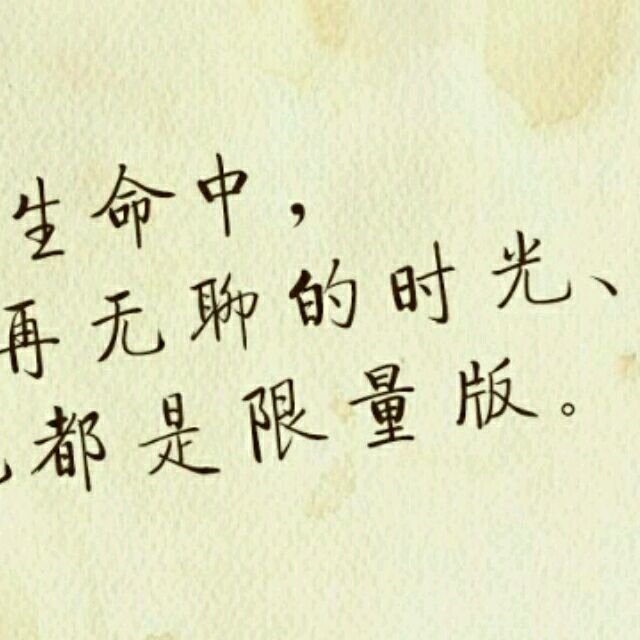 生命中，
再无聊的时光、
都是限量版。